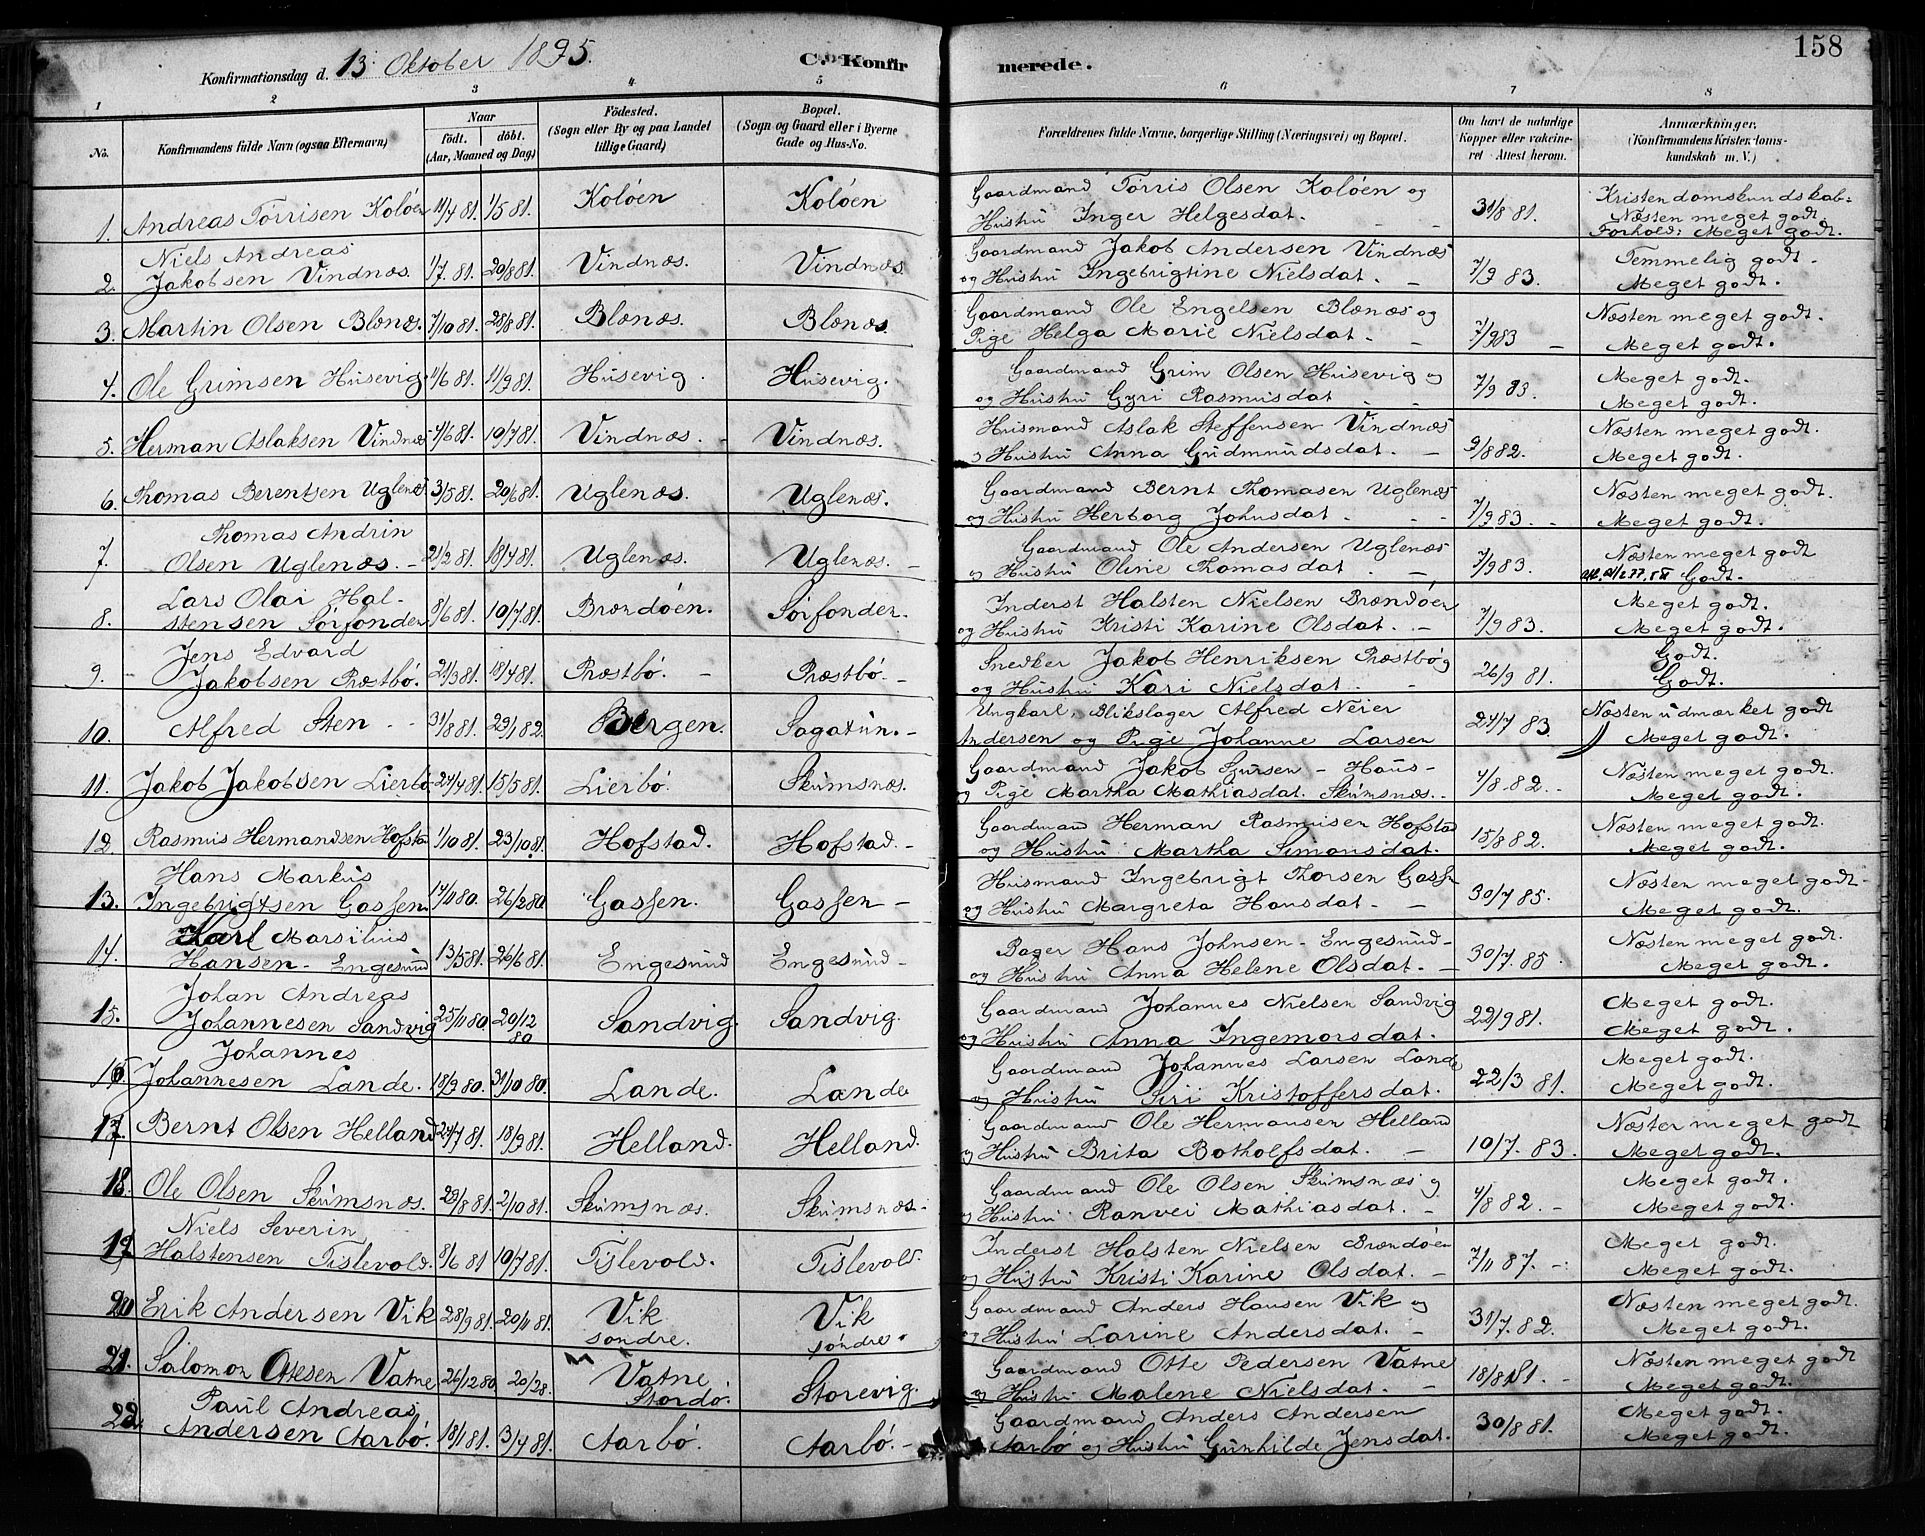 158
Konfirmationsdag d. 13 Oktober 1895. C. Konfirmerede.
1 2 3 4 5 6 7 8
No. Konfirmandens fulde Navn (ogsaa Efternavn) Naar födt. döbt. (Aar, Maaned og Dag) Födested. (Sogn eller By og paa Landet tillige Gaard) Bopæl. (Sogn og Gaard eller i Byerne Gade og Hus-No. Forældrenes fulde Navne, borgerlige Stilling (Næringsvei) og Bopæl. Om havt de naturlige Kopper eller vakcineret Attest herom. Anmærkninger. (Konfirmandens Kristendomskundskab m. V.)
1. Andreas Törrisen Kolöen 11/4 81. 1/5 81. Kolöen Kolöen Gaardmand Törris Olsen Kolöen og
Hustru Inger Helgesdat. 31/8 81. Kristendomskundskab: Næsten meget godt. Forhold: Meget godt.
2. Niels Andreas
Jakobsen Vindnæs. 1/7 81. 20/8 81. Vindnæs. Vindnæs Gaardmand Jakob Andersen Vindnæs
og Hustru Ingebrigtine Nielsdat. 7/9 83. Temmelig godt. Meget godt.
3. Martin Olsen Blænæs. 7/10 81. 28/8 81. Blænæs. Blænæs Gaardmand Ole Engelsen Blænæs og
Pige Helga Marie Nielsdat. 7/9 83 Næsten meget godt. Meget godt.
4. Ole Grimsen Husevig 1/6 81. 11/9 81. Husevig Husevig. Gaardmand Grim Olsen Husevig og
og Hustru Gyri Rasmusdat 7/9 83. Meget godt. Meget godt.
5. Herman Aslaksen Vindnæs 4/6 81. 10/7 81. Vindnæs. Vindnæs. Husmand Aslak Steffensen Vindnæs
og Hustru Anna Gudmundsdat. 9/8 82. Næsten meget godt. Meget godt.
6. Thomas Berentsen Uglenæs 3/5 81. 20/6 81. Uglenæs. Uglenæs. Gaardmand Bernt Thomasen Uglenæs
og Hustru Herborg Johnsdat. 7/9 83. Næsten meget godt. Meget godt.
7. Thomas Andrin
Olsen Uglenæs. 21/2 81. 18/4 81. Uglenæs. Uglenæs. Gaardmand Ole Andersen Uglenæs
og Hustru Oline Thomasdat 7/9 83. Næsten meget godt Godt.
8. Lars Olai Hal-
stensen Sörfonden 8/6 81. 10/7 81. Brændöen. Sörfonden. Inderst Halsten Nielsen Brændöen
og Hustru Kristi Karine Olsdat. 7/9 83. Meget godt. Meget godt.
9. Jens Edvard
Jakobsen Præstbö. 21/3 81. 18/4 81. Præstbö. Præstbö. Snedker Jakob Henriksen Præstbö
og Hustru Kari Nielsdat. 26/9 81. Godt. Godt.
10. Alfred Sten 31/8 81. 29/1 82. Bergen. Sagatun. Ungkarl, Blikslager Alfred Neier
Andersen og Pige Johanne Larsen 24/7 83. Næsten udmærket godt Meget godt.
11. Jakob Jakobsen Lierbö 24/4 81. 15/5 81. Lierbö. Skumsnæs. Gaardmand Jakob Sjursen - Haus-
og Pige Martha Mathiasdat. Skumsnæs. 4/8 82. Næsten meget godt. Meget godt.
12. Rasmus Hermandsen Hofsta 1/10 81. 23/10 81. Hofstad. Hofstad. Gaardmand Herman Rasmusen Hofstad
og Hustru Martha Simonsdat. 15/8 82. Næsten meget godt. Meget godt.
13. Hans Markus
Ingebrigtsen Gassen 14/11 80. 26/2 80 Gassen. Gassen Husmand Ingebrigt Thorsen Gassen
og Hustru Margreta Hansdat. 30/7 85. Næsten meget godt. Meget godt.
14. Karl Marsilius
Hansen Engesund 13/5 81. 26/6 81. Engesund Engesund Bager Hans Johnsen Engesund
og Hustru Anna Helene Olsdat. 30/7. 85. Næsten meget godt. Meget godt.
15. Johan Andreas
Johannesen Sandvig 25/11 80. 20/12 80 Sandvig. Sandvig. Gaardmand Johannes Nielsen Sandvig
og Hustru Anna Ingemorsdat. 22/9 81. Meget godt. Meget godt.
16. Johannes
Johannesen Lande. 18/9 80. 31/10 80. Lande. Lande Gaardmand Johannes Larsen Lande
og Hustru Siri Kristoffersdat. 22/3 81. Meget godt. Meget godt.
17. Bernt Olsen Helland 24/7 81. 18/9 81. Helland. Helland. Gaardmand Ole Hermansen Helland
og Hustru Brita Botholfsdat. 10/7. 83. Næsten meget godt Meget godt.
18. Ole Olsen Skumsnæs. 29/8 81. 2/10 81. Skumsnæs. Skumsnæs Gaardmand Ole Olsen Skumsnæs og
Hustru Ranvei Mathiasdat. 4/8 82. Meget godt. Meget godt.
19. Niels Severin
Halstensen Tislevold. 8/6 81 10/7 81. Tislevold. Tislevold. Inderst Halsten Nielsen Brændöen
og Hustru Kristi Karine Olsdat. 7/11 87. Meget godt. Meget godt.
20 Erik Andersen Vik 28/9 81. 20/11 81. Vik söndre. Vik söndre. Gaardmand Anders Hansen Vik og
og Hustru Larine Andersdat. 31/7. 82. Næsten meget godt. Meget godt.
21. Salomon Ottesen Vatne 26/12 80 20/28. Vatne Stordö. Storevig. Gaardmand Otte Pedersen Vatne
og Hustru Malene Nielsdat. 18/8 81. Næsten meget godt Meget godt.
22. Paul Andreas
Andersen Aarbö. 18/1 81. 3/4 81. Aarbö. Aarbö. Gaardmand Anders Andersen
Aarbö og Hustru Gunhilde Jensdat. 30/8 81. Meget godt. Meget godt.